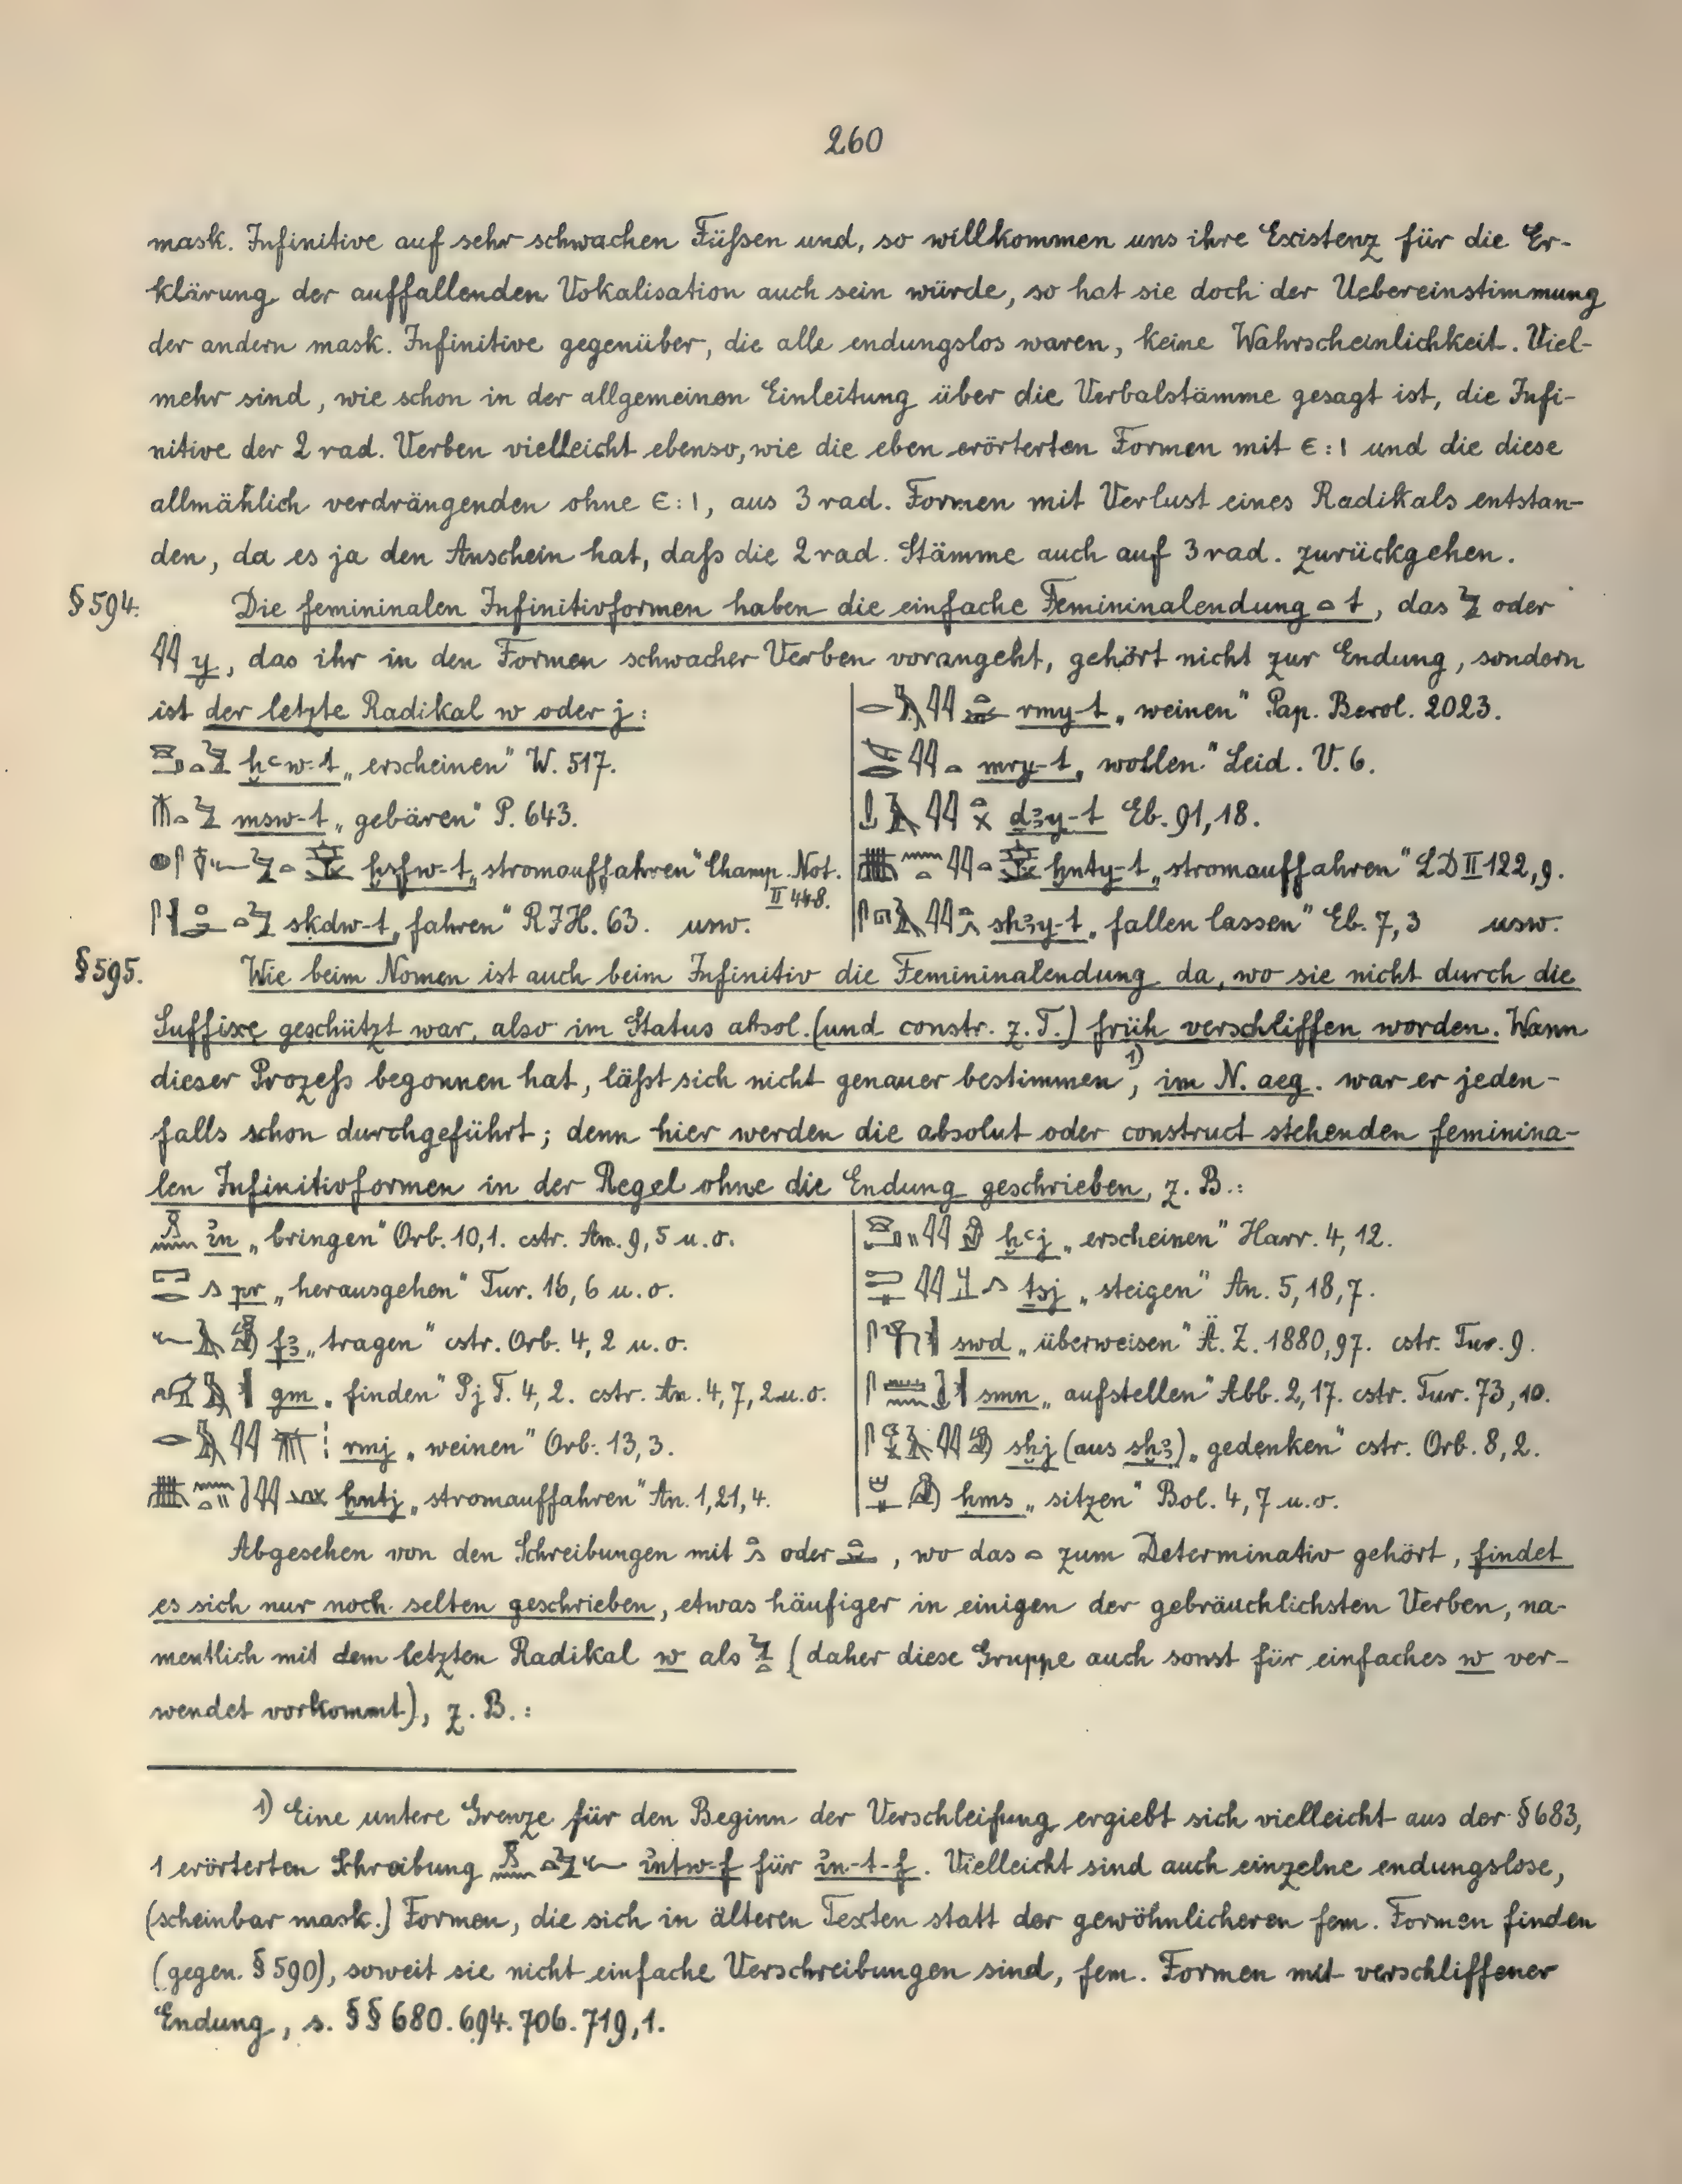 260
mask. Infinitive auf sehr schwachen Füßen und, so willkommen uns ihre Existenz für die Er-
klärung der auffallenden Vokalisation auch sein würde, so hat sie doch der Uebereinstimmung
der andern mask. Infinitive gegenüber, die alle endungslos waren, keine Wahrscheinlichkeit. Viel-
mehr sind, wie schon in der allgemeinen Einleitung über die Verbalstämme gesagt ist, die Infi-
nitive der 2 rad. Verben vielleicht ebenso, wie die eben erörterten Formen mit ⲉ:ⲓ und die diese
allmählich verdrängenden ohne ⲉ:ⲓ, aus 3 rad. Formen mit Verlust eines Radikals entstan-
den, da es ja den Anschein hat, daß die 2 rad. Stämme auch auf 3 rad. zurückgehen.
§ 594. Die femininalen Infinitivformen haben die einfache Femininalendung 𓏏 t, das 𓅱 oder
𓇌 y, das ihr in den Formen schwacher Verben vorangeht, gehört nicht zur Endung, sondern
ist der letzte Radikal w oder j:
ḫꜥw-t „erscheinen" W. 517.
msw-t „gebären" P. 643.
ḫsfw-t „stromauffahren" Champ. Not. II 448.
skdw-t „fahren" RJH. 63. usw.
rmy-t „weinen" Pap. Berol. 2023.
mry-t „wollen" Leid. V. 6.
dꜣy-t Eb. 91,18.
ḫnty-t „stromauffahren" LD II 122,9.
shꜣy-t „fallen lassen" Eb. 7,3 usw.
§ 595. Wie beim Nomen ist auch beim Infinitiv die Femininalendung da, wo sie nicht durch die
Suffixe geschützt war, also im Status absol. (und constr. z. T.) früh verschliffen worden. Wann
dieser Prozeß begonnen hat, läßt sich nicht genauer bestimmen,¹⁾ im N. aeg. war er jeden-
falls schon durchgeführt; denn hier werden die absolut oder construct stehenden feminina-
len Infinitivformen in der Regel ohne die Endung geschrieben, z. B.:
ı͗n „bringen" Orb. 10,1. cstr. An. 9,5 u. o.
pr „herausgehen" Tur. 16,6 u. o.
fꜣ „tragen" cstr. Orb. 4,2 u. o.
gm „finden" Pj T. 4,2. cstr. An. 4,7,2 u. o.
rmj „weinen" Orb. 13,3.
ḫntj „stromauffahren" An. 1,21,4.
ḫꜥj „erscheinen" Harr. 4,12.
tsj „steigen" An. 5,18,7.
swd „überweisen" Ä. Z. 1880,97. cstr. Tur. 9.
smn „aufstellen" Abb. 2,17. cstr. Tur. 73,10.
sḫj (aus sḫꜣ) „gedenken" cstr. Orb. 8,2.
hms „sitzen" Bol. 4,7 u. o.
Abgesehen von den Schreibungen mit oder , wo das 𓏏 zum Determinativ gehört, findet
es sich nur noch selten geschrieben, etwas häufiger in einigen der gebräuchlichsten Verben, na-
mentlich mit dem letzten Radikal w als 𓅱𓏏 (daher diese Gruppe auch sonst für einfaches w ver-
wendet vorkommt), z. B.:
1) Eine untere Grenze für den Beginn der Verschleifung ergiebt sich vielleicht aus der § 683,
1 erörterten Schreibung ı͗ntw-f für ı͗n-t-f. Vielleicht sind auch einzelne endungslose,
(scheinbar mask.) Formen, die sich in älteren Texten statt der gewöhnlicheren fem. Formen finden
(gegen. § 590), soweit sie nicht einfache Verschreibungen sind, fem. Formen mit verschliffener
Endung, s. §§ 680. 694. 706. 719,1.